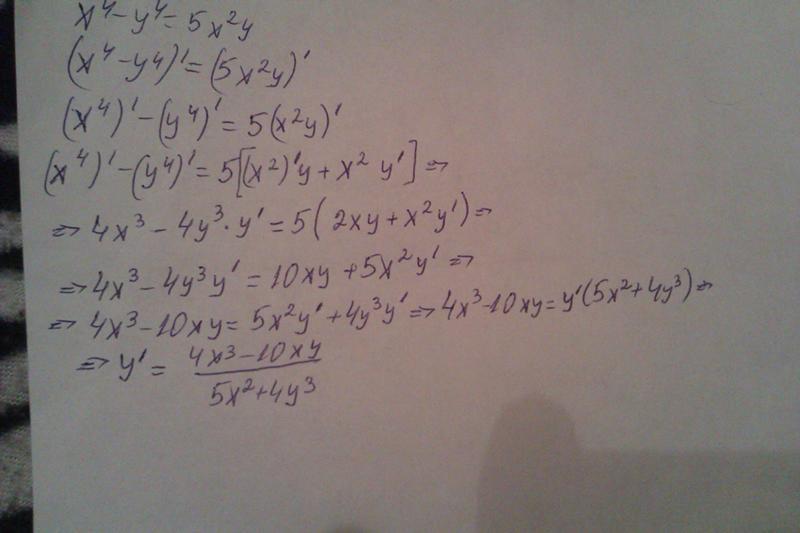 x⁴-y⁴=5x²y
(x⁴-y⁴)'=(5x²y)'
(x⁴)'-(y⁴)'=5(x²y)'
(x⁴)'-(y⁴)'=5[(x²)'y+x² y']⇒
⇒4x³-4y³·y'=5(2xy+x²y')⇒
⇒4x³-4y³y'=10xy+5x²y'⇒
⇒4x³-10xy=5x²y'+4y³y'⇒4x³-10xy=y'(5x²+4y³)⇒
⇒y'=\frac{4x³-10xy}{5x²+4y³}